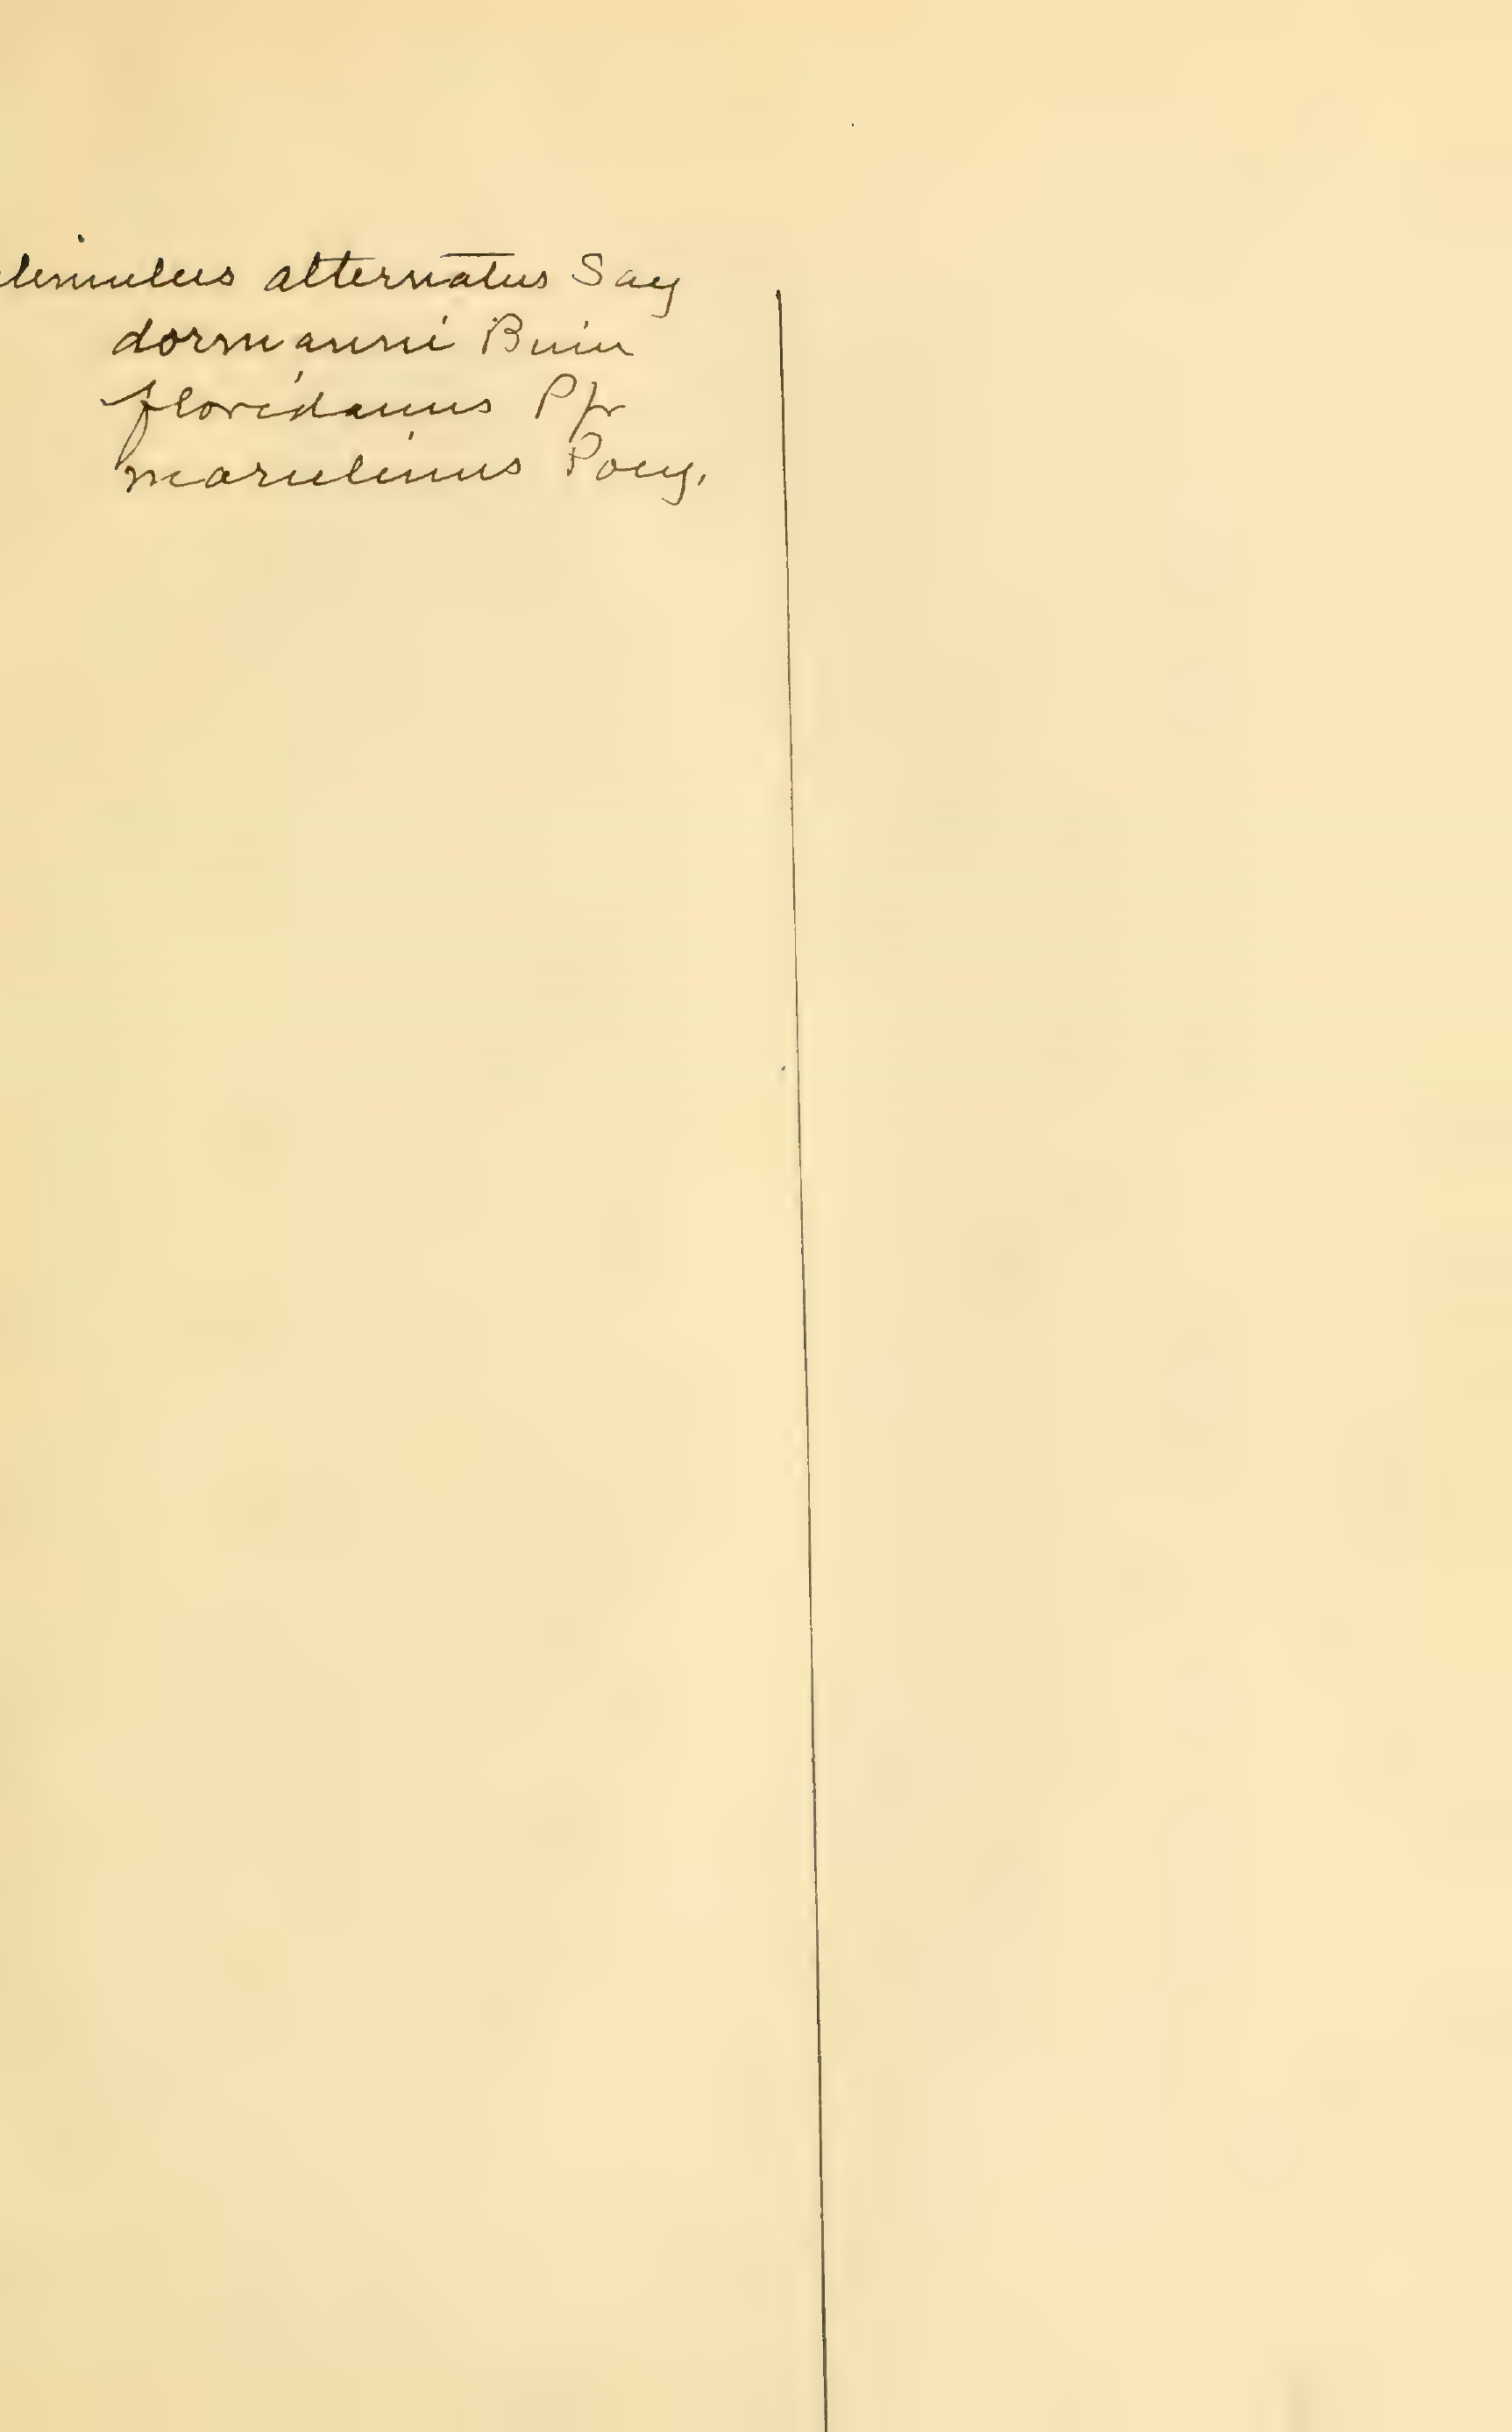 limulus alternatus Say
dormanni Binn
floridanus Pfr
marielinus Poey.